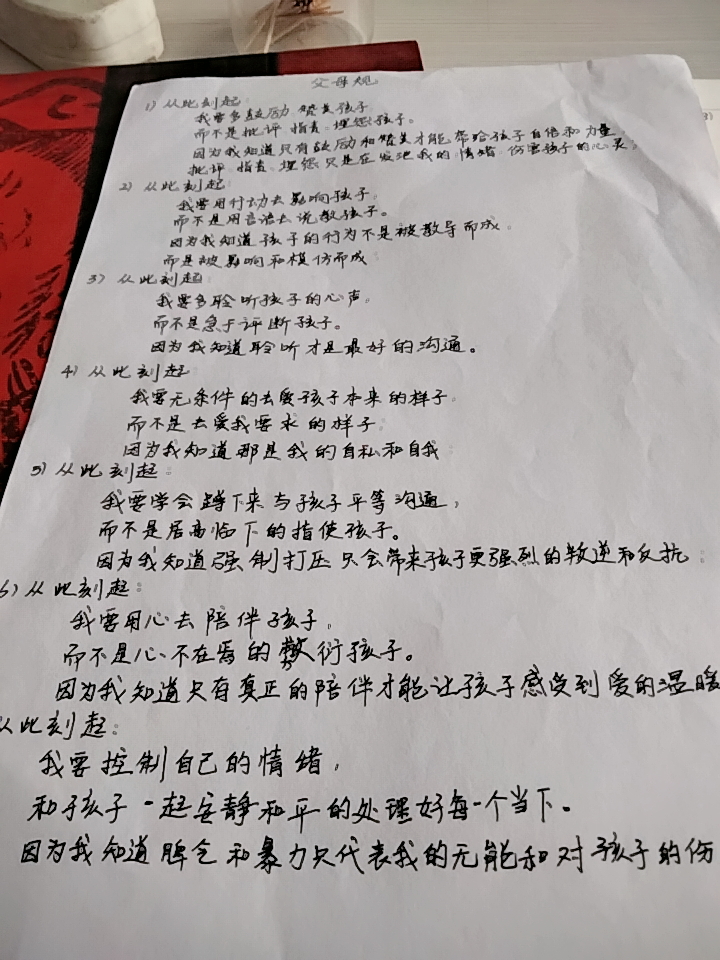 父母规
1) 从此刻起:
我要多鼓励 赞美孩子.
而不是批评 指责 埋怨孩子。
因为我知道只有鼓励和赞美才能带给孩子自信和力量.
批评 指责 埋怨只是在发泄我的情绪 伤害孩子的心灵。
2) 从此刻起:
我要用行动去影响孩子.
而不是用言语去说教孩子。
因为我知道孩子的行为不是被教导而成.
而是被影响和模仿而成
3) 从此刻起:
我要多聆听孩子的心声。
而不是急于评断孩子。
因为我知道聆听才是最好的沟通。
4) 从此刻起
我要无条件的去爱孩子本来的样子.
而不是去爱我要求的样子.
因为我知道那是我的自私和自我
5) 从此刻起:
我要学会蹲下来与孩子平等沟通,
而不是居高临下的指使孩子。
因为我知道强制打压只会带来孩子更强烈的叛逆和反抗.
6) 从此刻起:
我要用心去陪伴孩子,
而不是心不在焉的敷衍孩子。
因为我知道只有真正的陪伴才能让孩子感受到爱的温暖
从此刻起:
我要控制自己的情绪,
和孩子一起安静和平的处理好每一个当下。
因为我知道脾气和暴力只代表我的无能和对孩子的伤